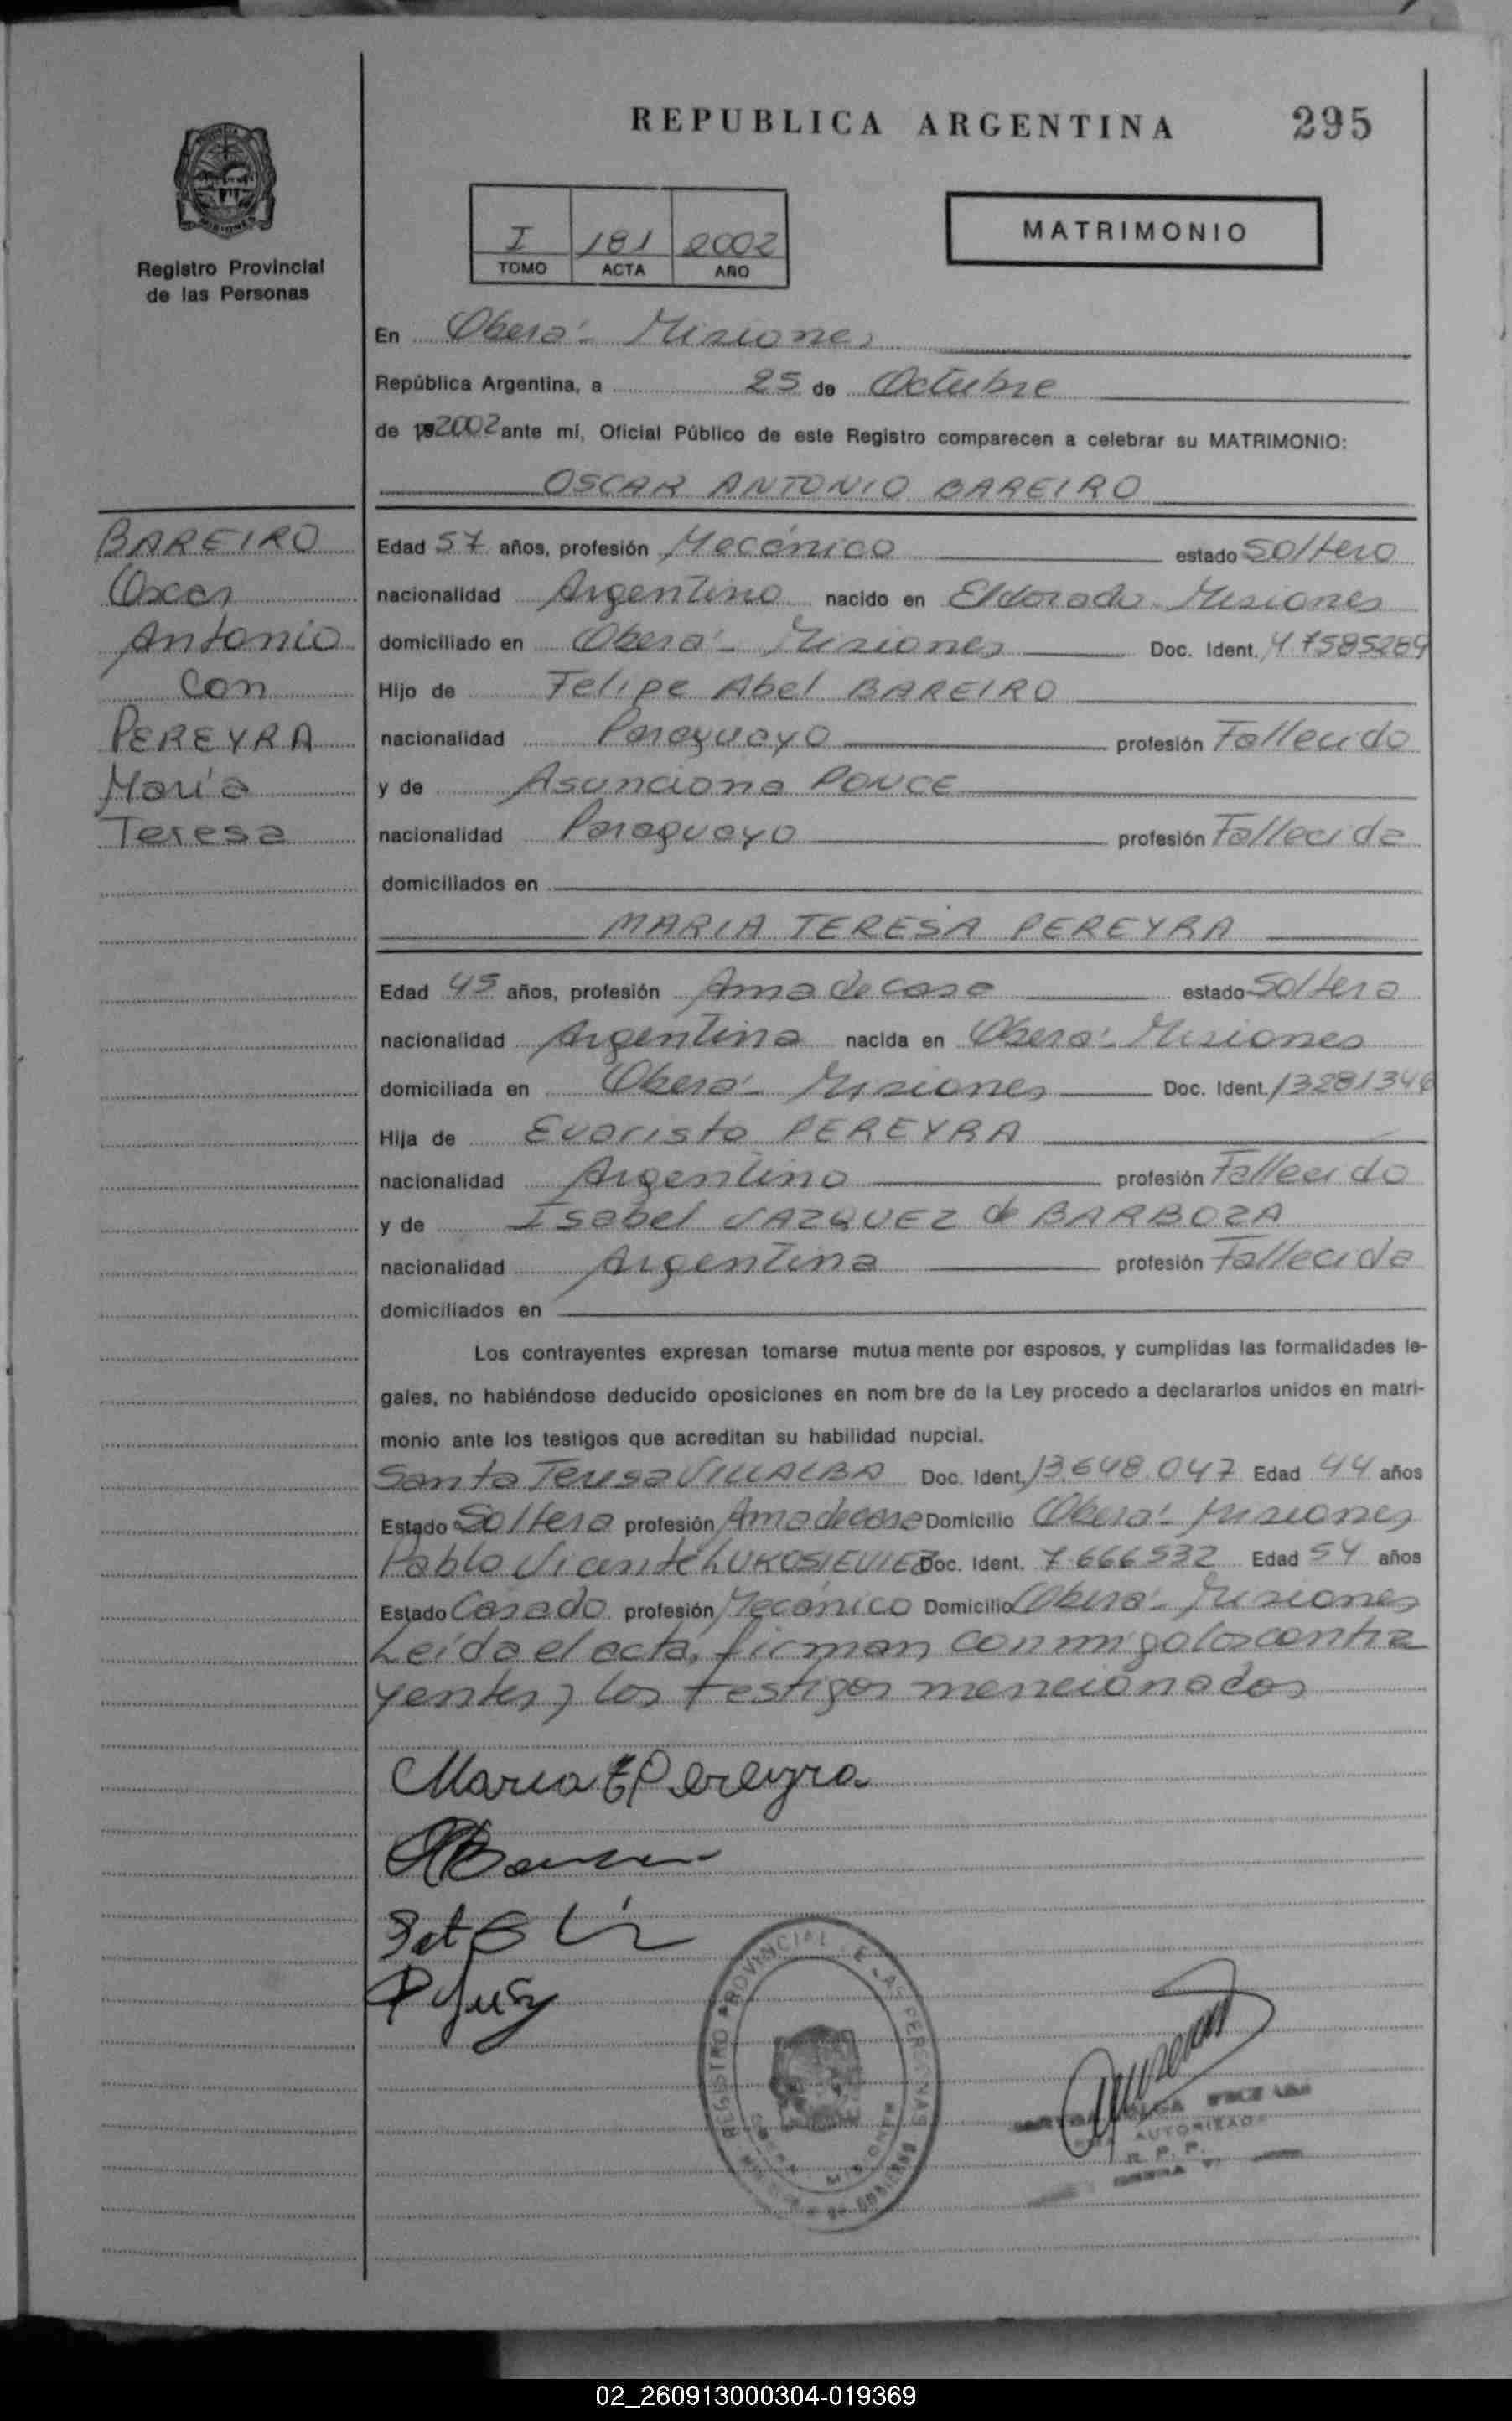 REPUBLICA ARGENTINA
295
Registro Provincial
de las Personas
I 181 2002
TOMO ACTA AÑO
MATRIMONIO
En Oberá - Misiones
República Argentina, a 25 de Octubre
de 192002 ante mí, Oficial Público de este Registro comparecen a celebrar su MATRIMONIO:
OSCAR ANTONIO BAREIRO
BAREIRO
Oscar
Antonio
con
PEREYRA
María
Teresa
Edad 57 años, profesión Mecánico estado Soltero
nacionalidad Argentino nacido en Eldorado Misiones
domiciliado en Oberá - Misiones Doc. Ident. M 7585289
Hijo de Felipe Abel BAREIRO
nacionalidad Paraguayo profesión Fallecido
y de Asunciona PONCE
nacionalidad Paraguayo profesión Fallecida
domiciliados en
MARIA TERESA PEREYRA
Edad 45 años, profesión Ama de casa estado Soltera
nacionalidad Argentina nacida en Oberá - Misiones
domiciliada en Oberá - Misiones Doc. Ident. 13281346
Hija de Evaristo PEREYRA
nacionalidad Argentino profesión Fallecido
y de Isabel VAZQUEZ de BARBOZA
nacionalidad Argentina profesión Fallecida
domiciliados en
Los contrayentes expresan tomarse mutua mente por esposos, y cumplidas las formalidades le-
gales, no habiéndose deducido oposiciones en nom bre de la Ley procedo a declararlos unidos en matri-
monio ante los testigos que acreditan su habilidad nupcial.
Santa Teresa VILLALBA Doc. Ident. 13.648.047 Edad 44 años
Estado Soltera profesión Ama de casa Domicilio Oberá - Misiones
Pablo Vicente LUKOSIEVIEZ Doc. Ident. 7.666532 Edad 54 años
Estado Casado profesión Mecánico Domicilio Oberá - Misiones
Leída el acta, firman conmigo los contra
yentes y los testigos mencionados
Maria T Pereyra
REGISTRO PROVINCIAL DE LAS PERSONAS
MISIONES
AUTORIZADO
R. P. P.
02_260913000304-019369